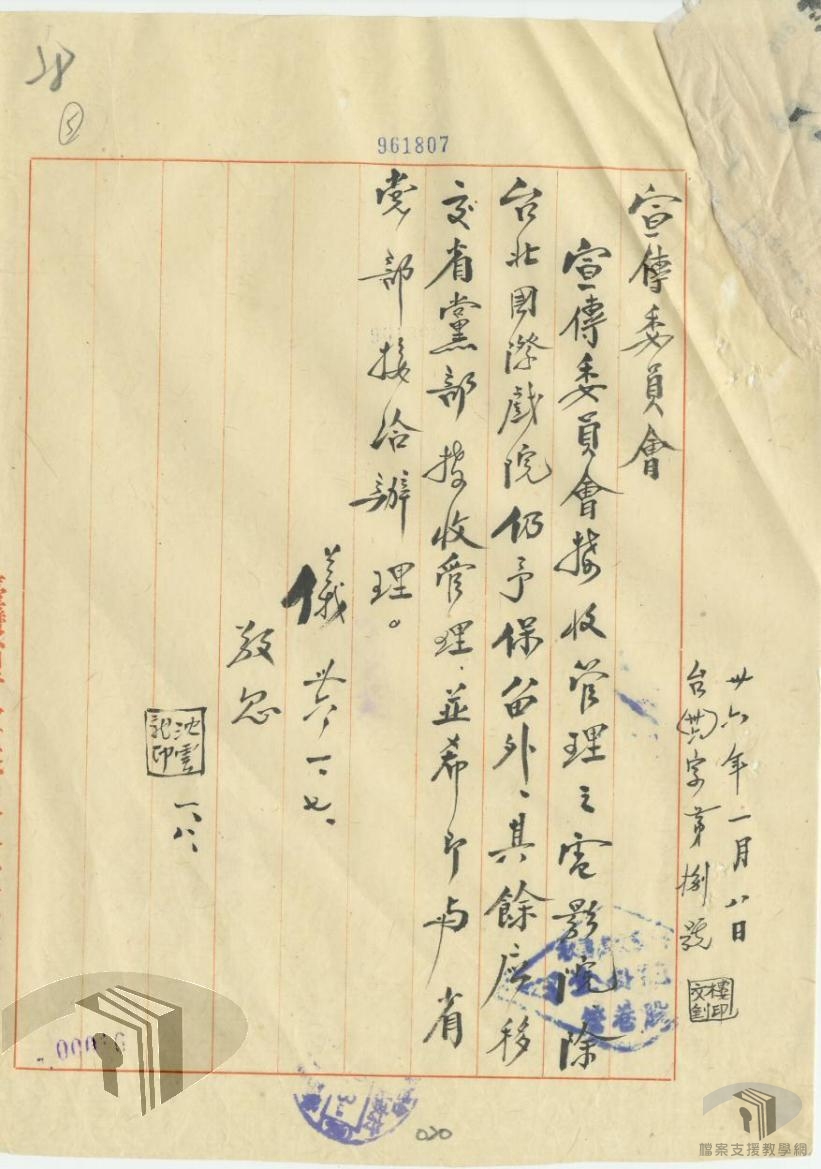 卅六年一月八日
台(卅六)字第捌號
樓文釗印
宣傳委員會
宣傳委員會接收管理之電影院除
台北國際戲院仍予保留外、其餘應移
交省黨部接收管理、並希即与省
党部接洽辦理。
儀 卅六、一、七、
敬忽
沈雲記印
一、八、
961807
5
020
檔案支援教學網